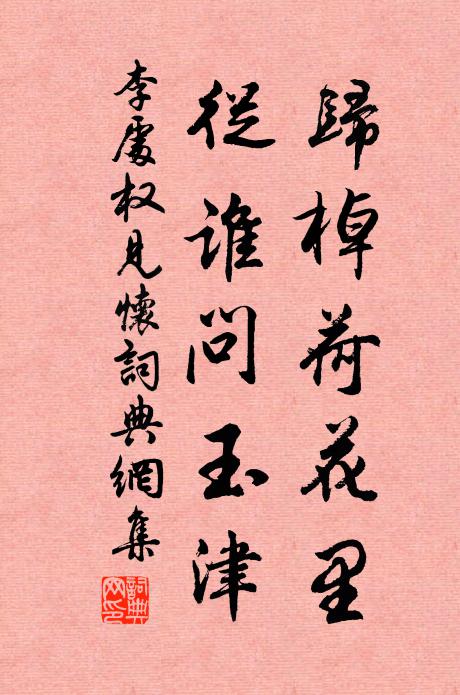 歸棹荷花里
從誰問玉津
李處权見懷詞典網集
詞典
网印